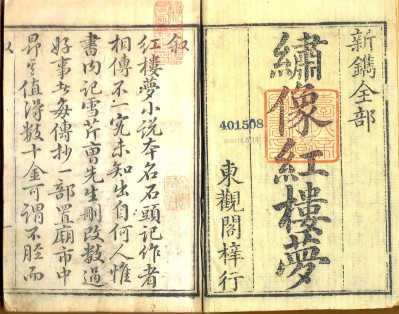 新鐫全部
繡像紅樓夢
東觀閣梓行
401508
叙
紅樓夢小說本名石頭記作者
相傳不一究未知出自何人惟
書內記雪芹曹先生刪改數過
好事者每傳抄一部置廟市中
昂其值得數十金可謂不脛而